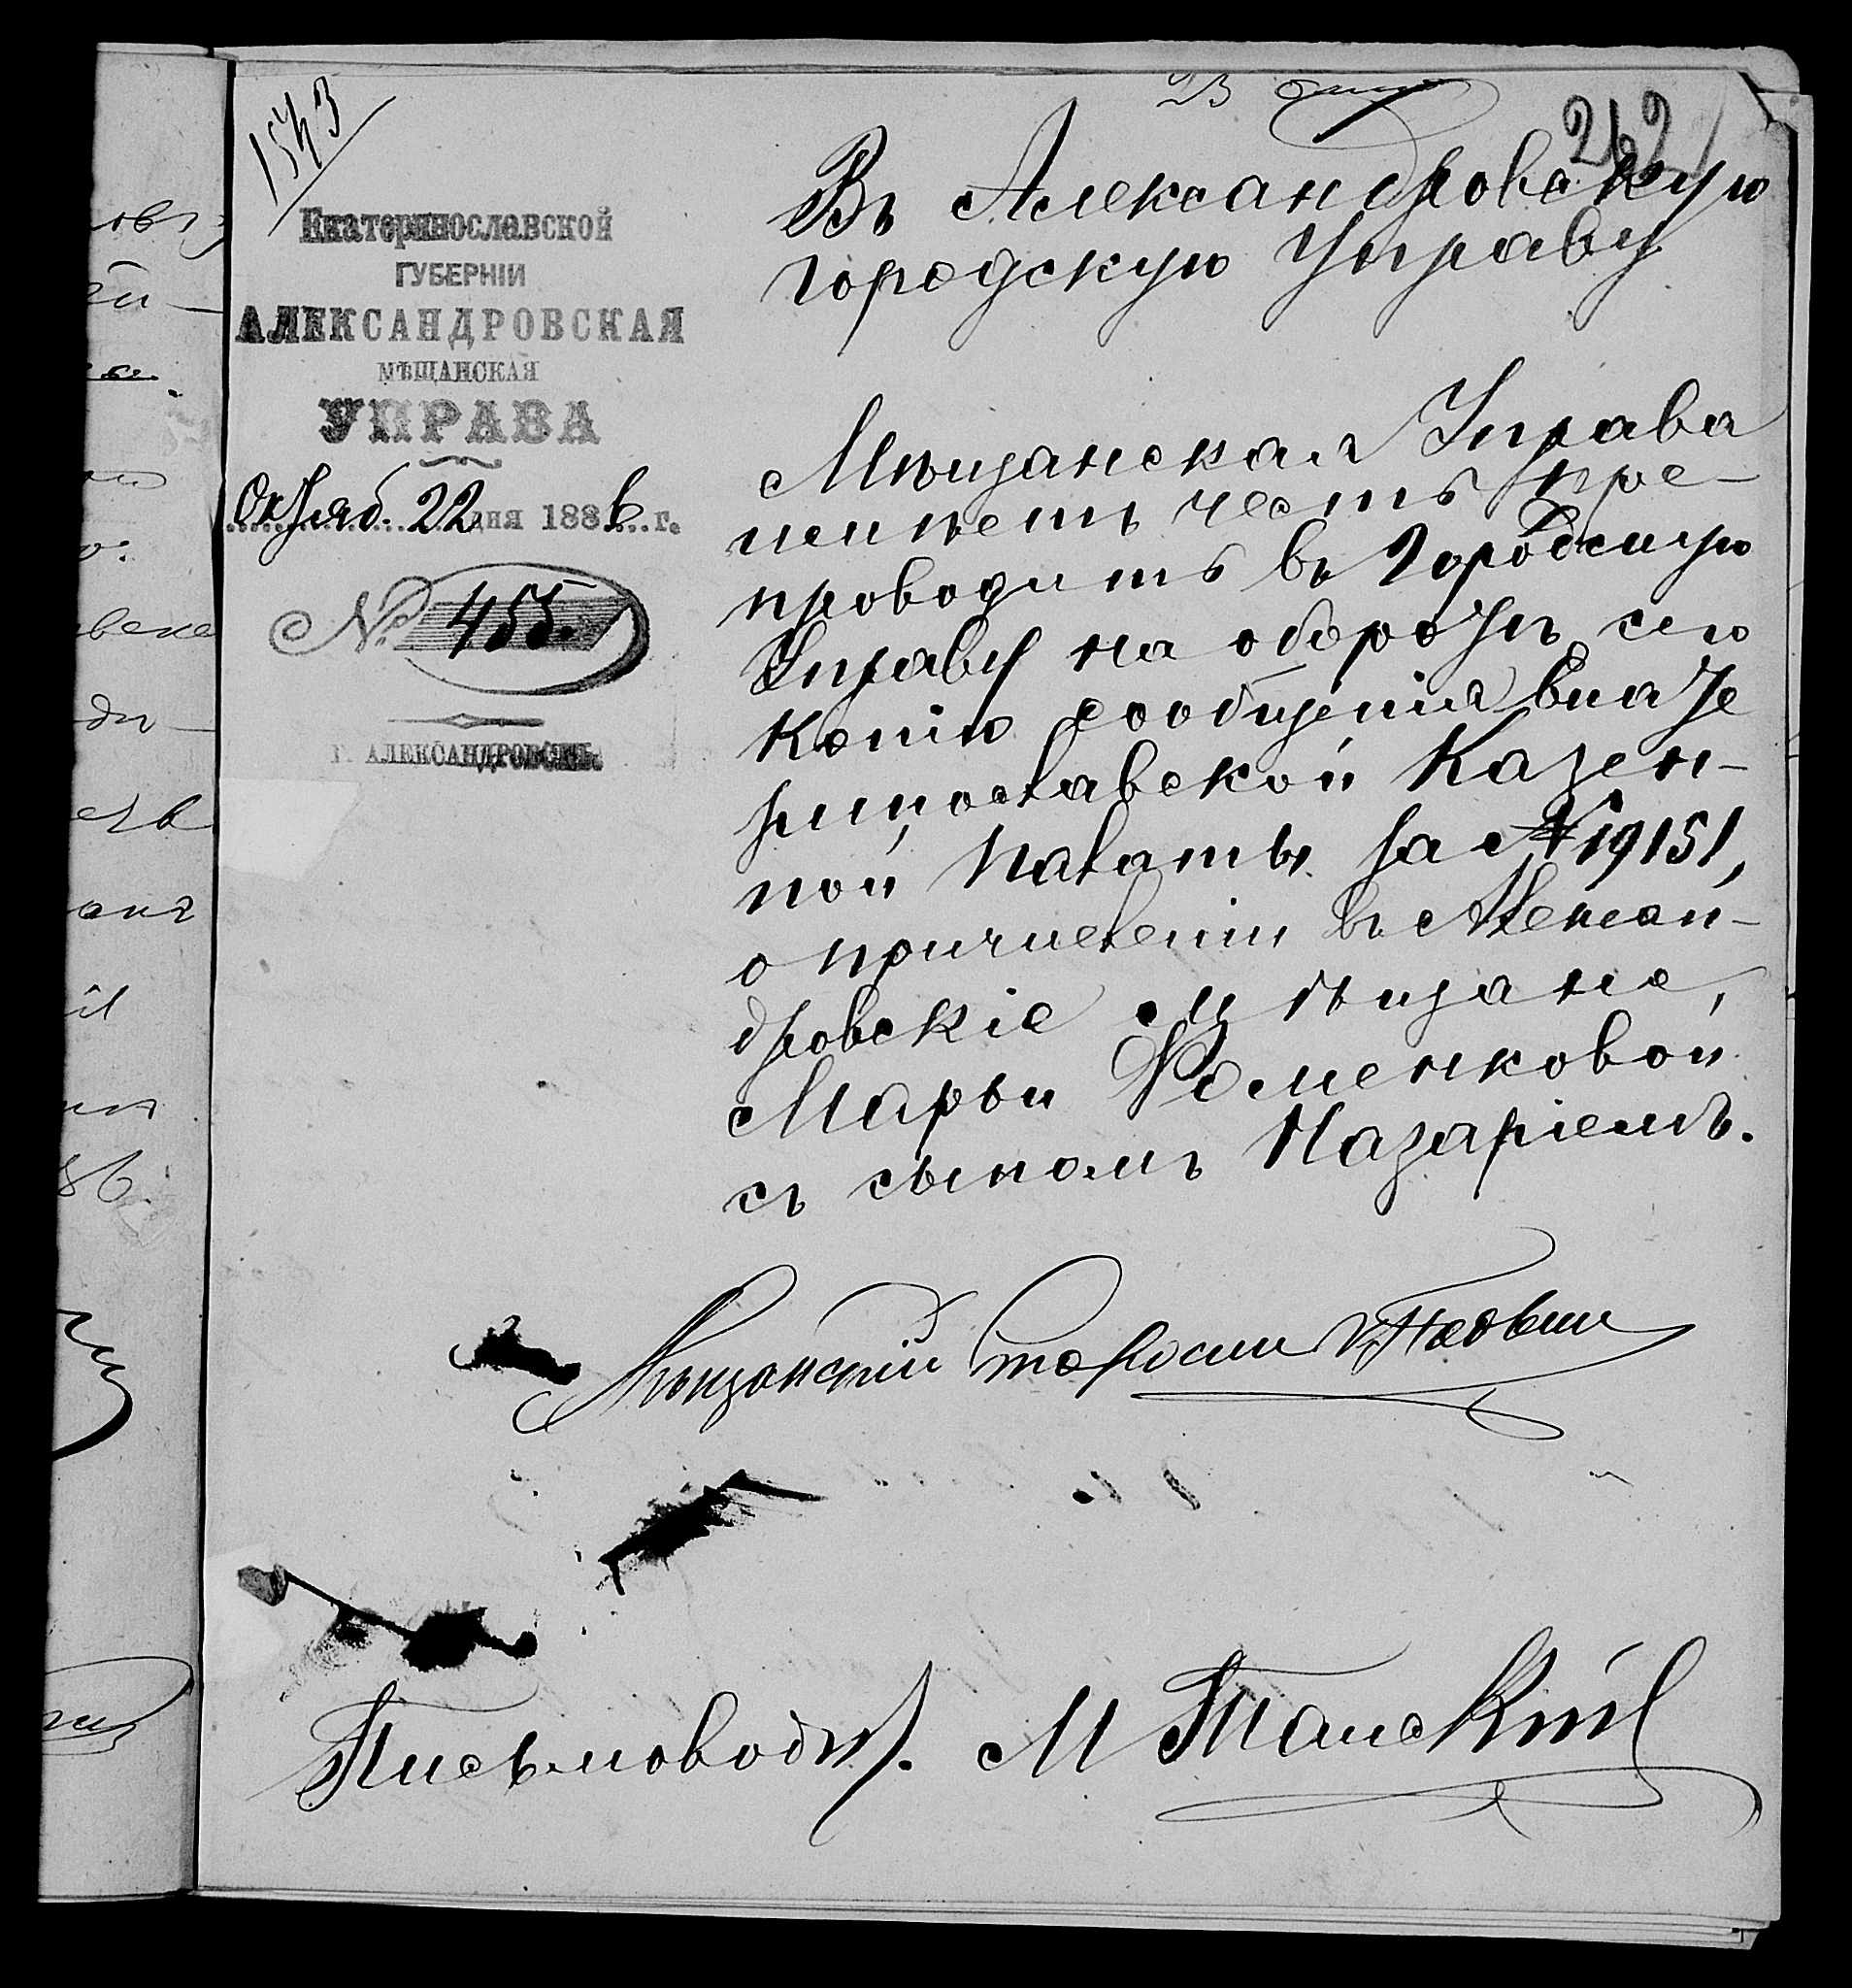 1543
23 окт
262
Екатеринославской
ГУБЕРНІИ
АЛЕКСАНДРОВСКАЯ
МѢЩАНСКАЯ
УПРАВА
Октяб. 22 дня 1886 г.
№ 455.
Г. АЛЕКСАНДРОВСКЪ.
Въ Александровскую
городскую Управу
Мѣщанская Управа
имѣетъ честь пре-
проводить въ Городскую
Управу на оборотѣ сего
копію сообщенія Екате
ринославской Казен-
ной Палаты за № 19151,
о причисленіи въ Алексан-
дровскіе мѣщане,
Марьи Фоменковой
съ сыномъ Назаріемъ.
Мѣщанскій Староста
Письмоводит.